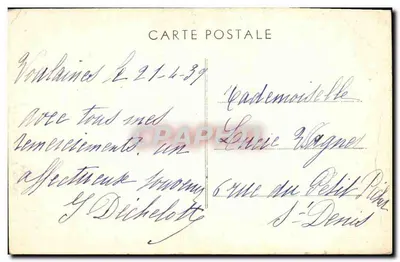 CARTE POSTALE
Voulaines le 21-4-39
avec tous mes
remerciements un
affectueux souvenir
G Déchelotte
Mademoiselle
Lucie Wagner
6 rue du Petit
St Denis